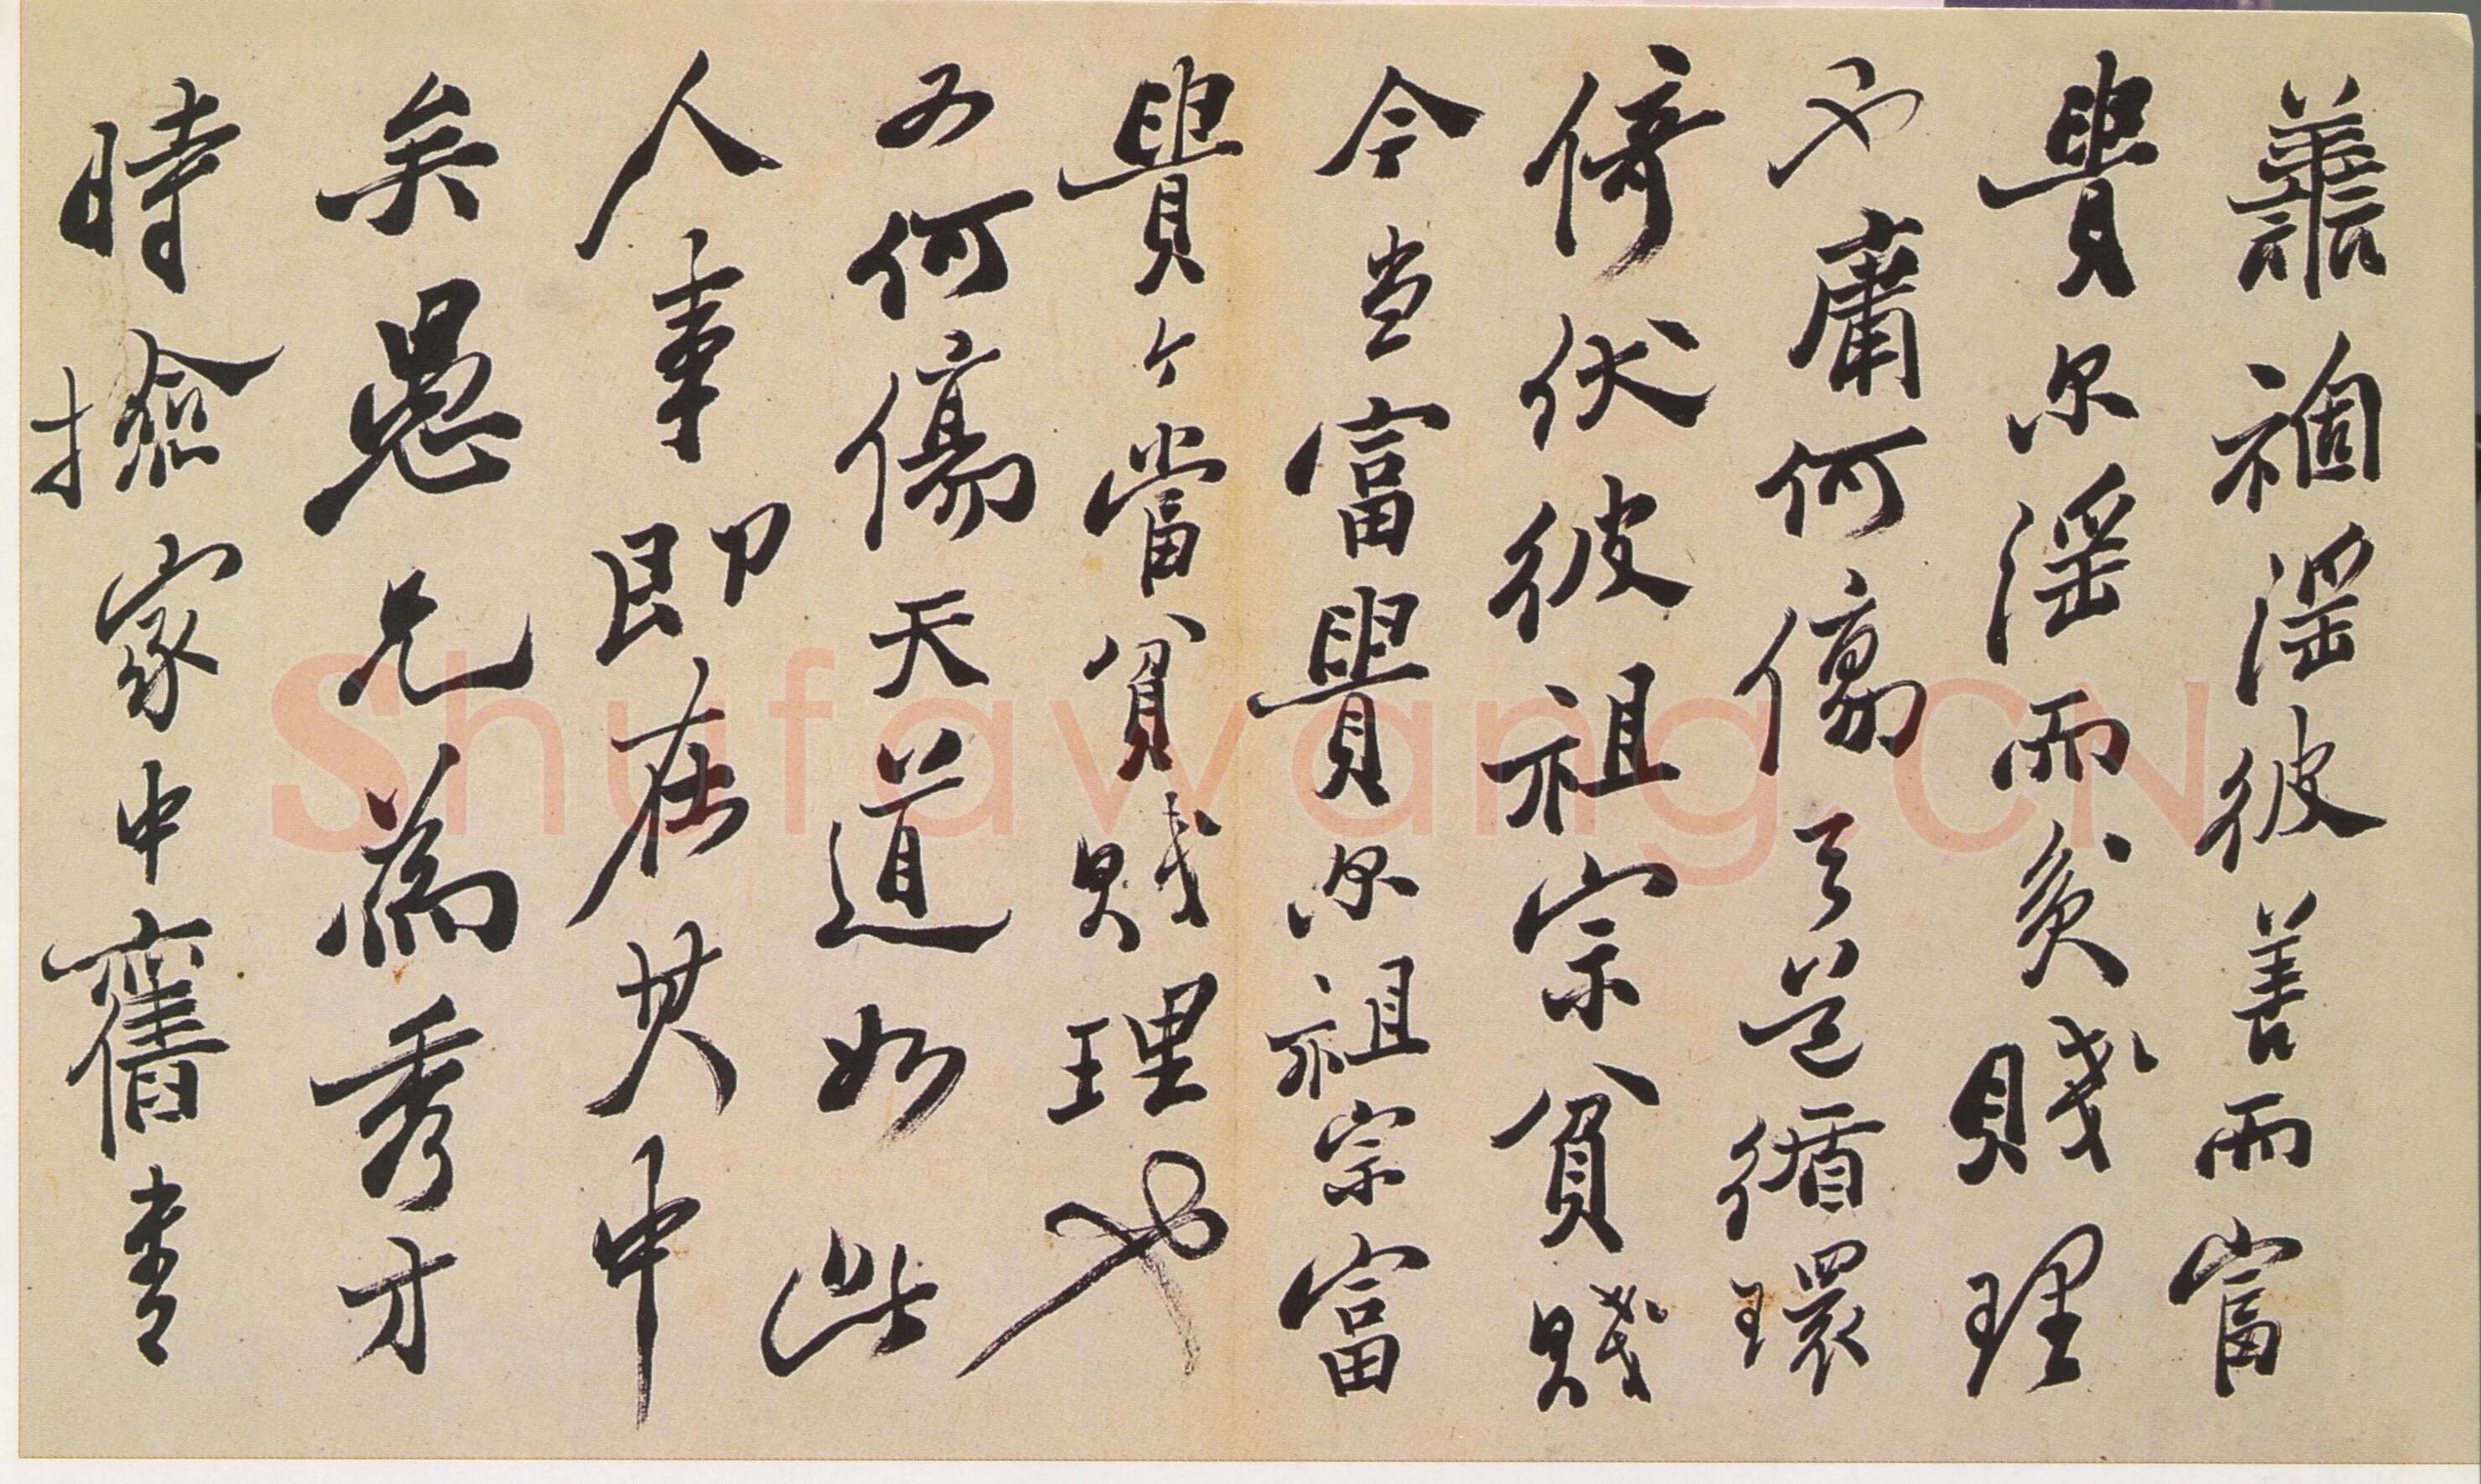 譱禍淫彼善而富
貴尔淫而貧賤理
也庸何傷天道循環
倚伏彼祖宗貧賤
今當富貴尔祖宗富
貴今當貧賤理也
又何傷天道如此
人事即在其中
矣愚兄為秀才
時撿家中舊書
Shufawang.CN